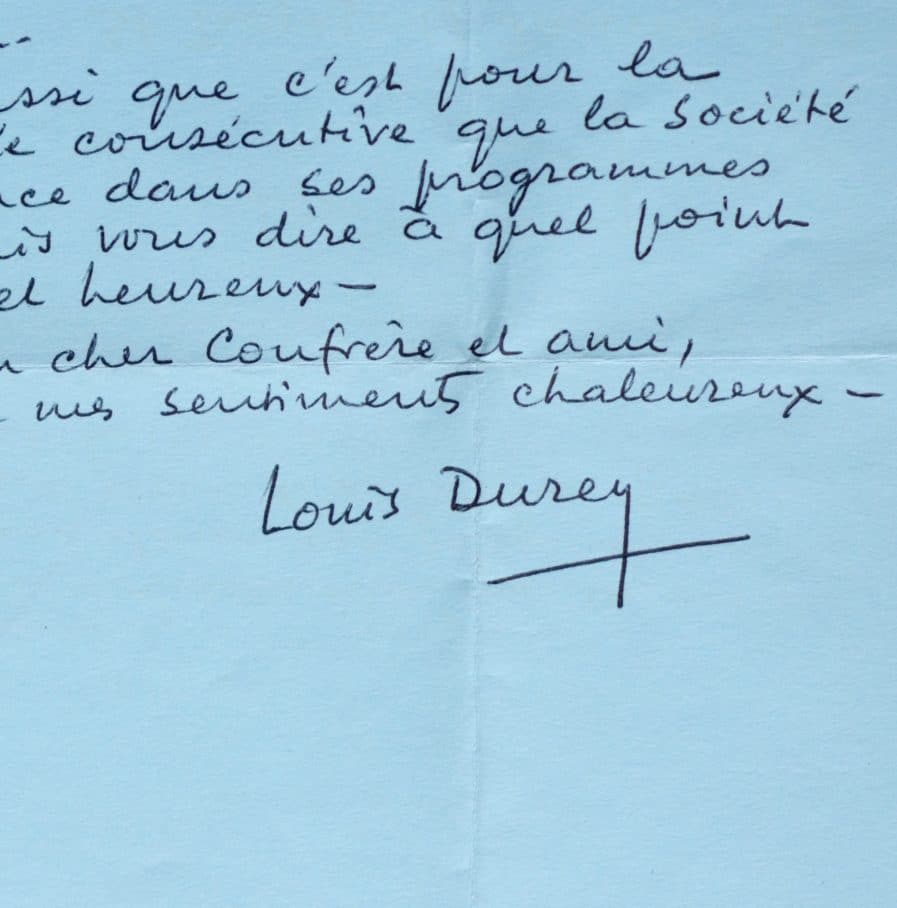 ssi que c'est pour la
e consécutive que la Société
ce dans ses programmes
is vous dire à quel point
et heureux –
cher Confrère et ami,
mes sentiments chaleureux –
Louis Durey